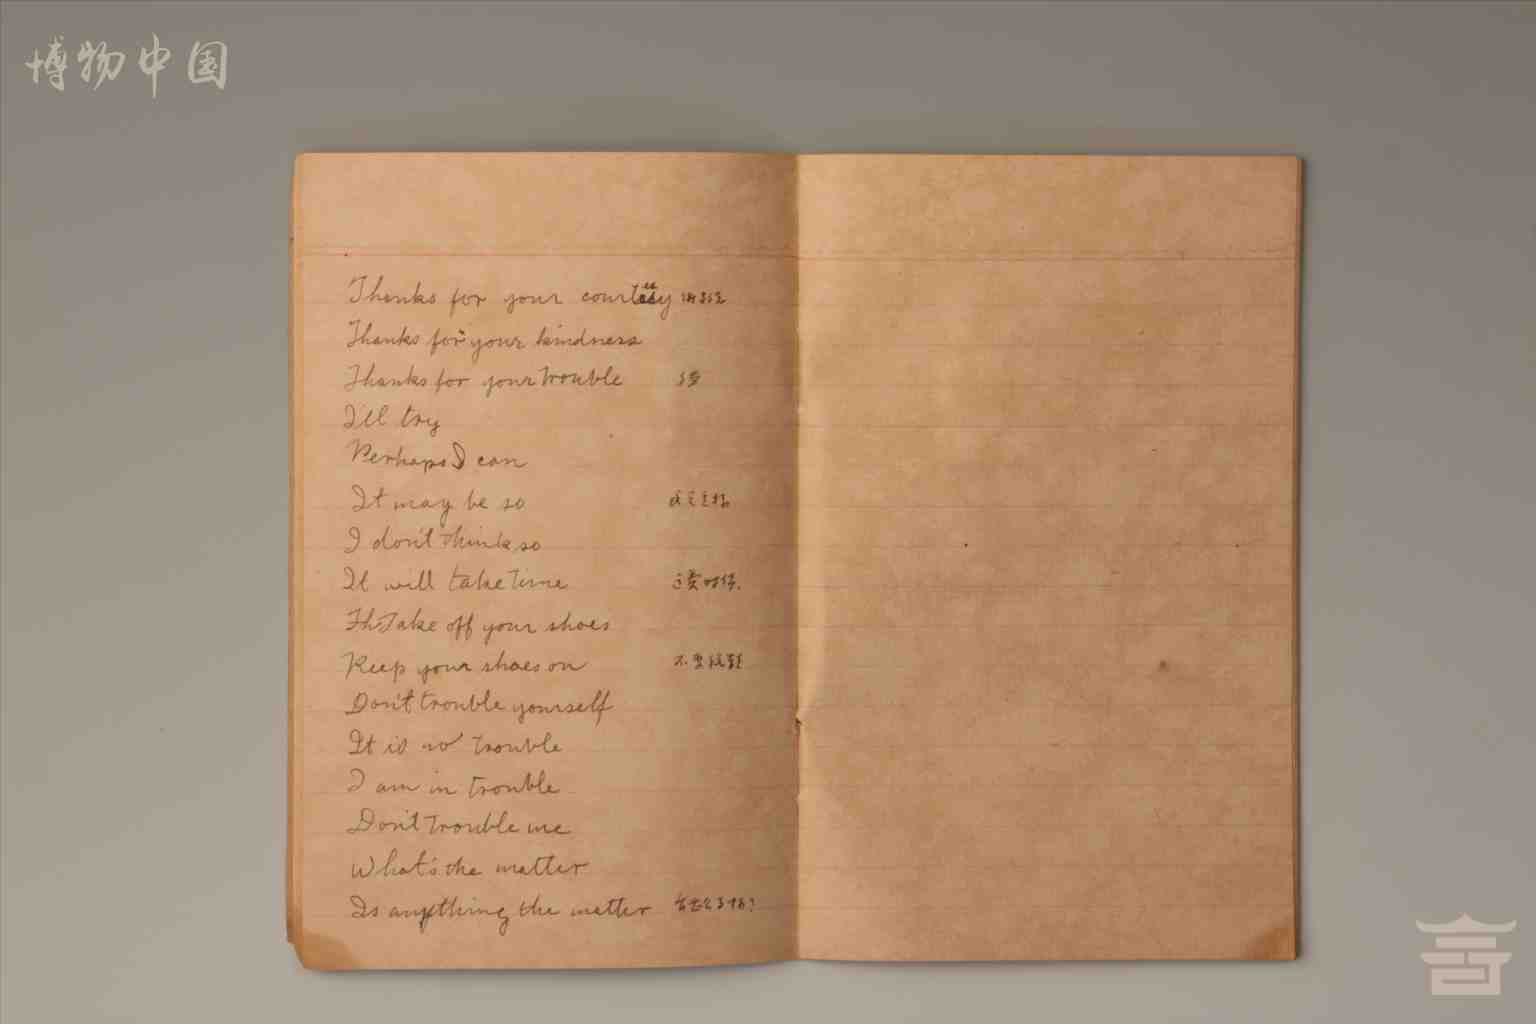 博物中国
Thanks for your courtesy
Thanks for your kindness
Thanks for your trouble
I'll try
Perhaps I can
It may be so
I don't think so
It will take time
Th Take off your shoes
Keep your shoes on 不要脱鞋
Don't trouble yourself
It is no trouble
I am in trouble
Don't trouble me
What's the matter
Is anything the matter